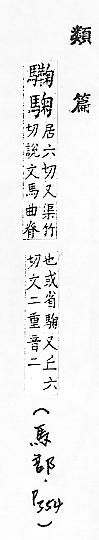 類篇
驧
駶
居六切又渠竹
切說文馬曲脊
也或省駶又丘六
切文二重音二
(馬部·P354)